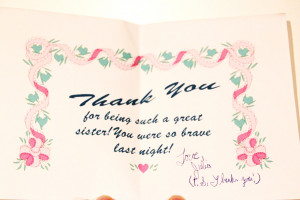 Thank You
for being such a great
sister! You were so brave
last night!
Love
Julia
(P.S. I
you!)